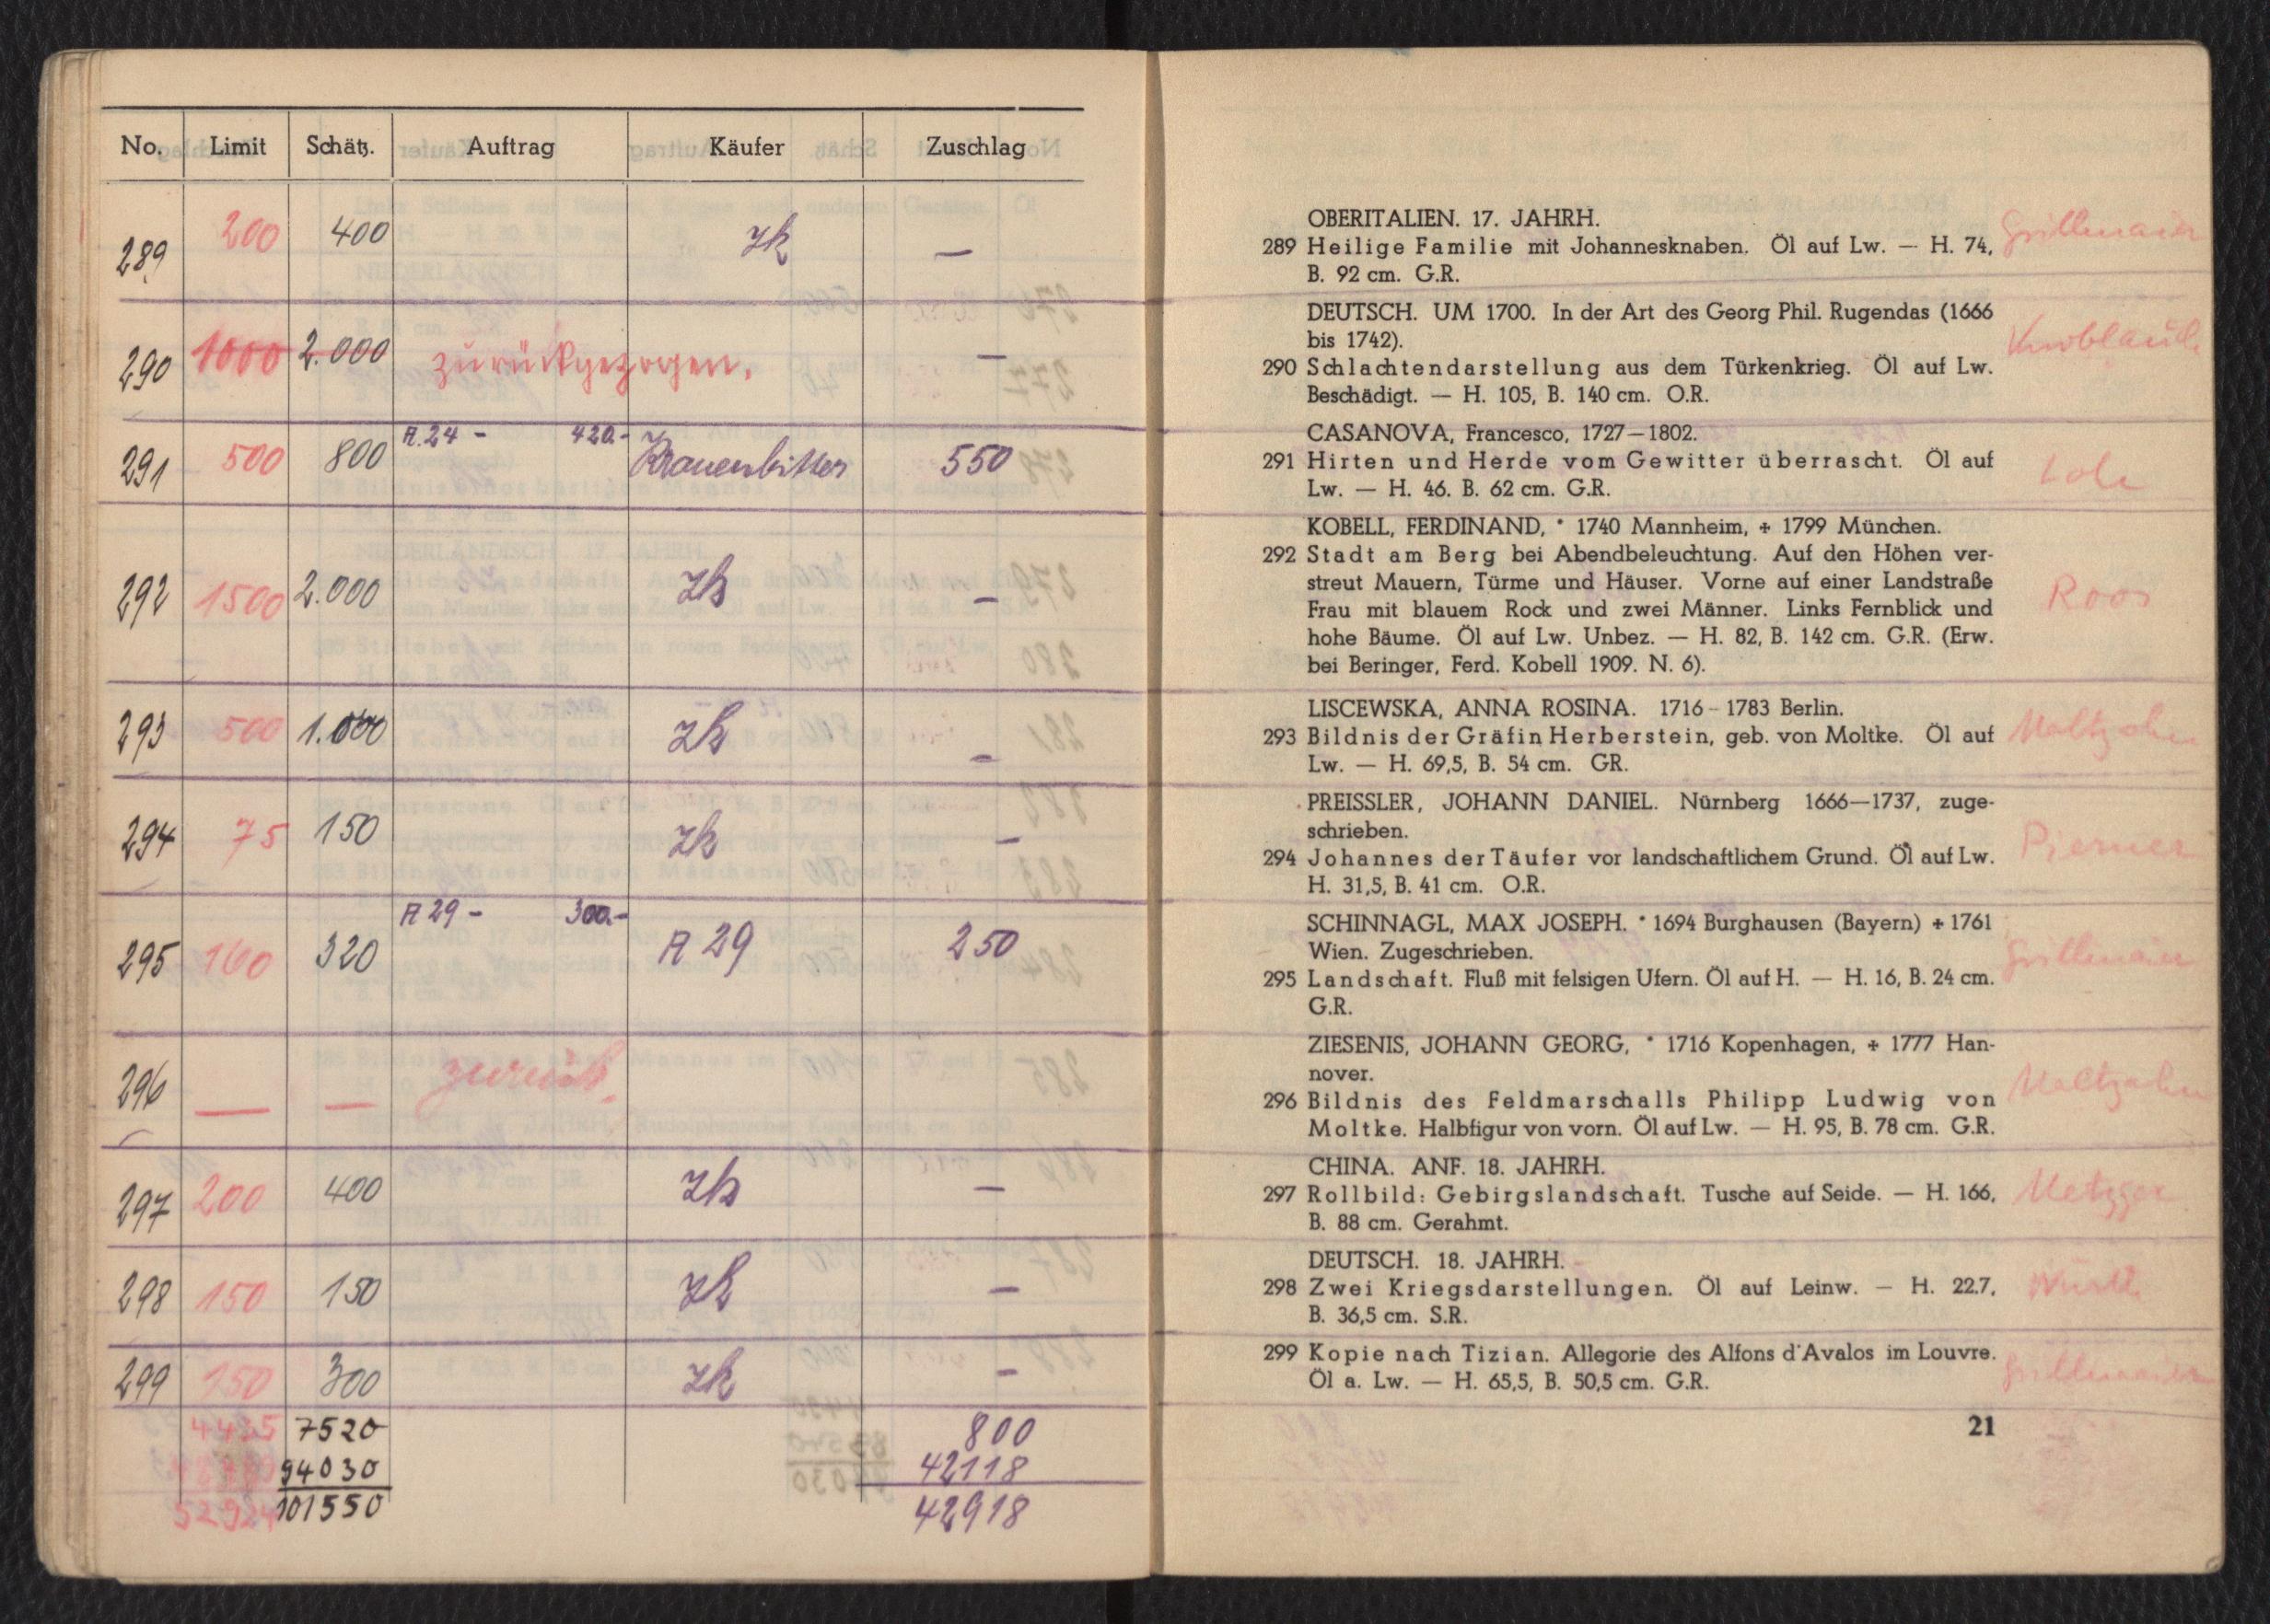 No. Limit Schätz. Auftrag Käufer Zuschlag
289 200 400 zk —
290 1000 2.000 zurückgezogen. —
291 500 800 A.24 - 420.- Krauenbitter 550
292 1500 2.000 zk —
293 500 1.000 zk —
294 75 150 zk —
295 160 320 A 29 - 300.- A 29 250
296 — — zurück.
297 200 400 zk —
298 150 150 zk —
299 150 300 zk —
7520 800
94030 42118
52924 101550 42918
OBERITALIEN. 17. JAHRH. Grillmaier
289 Heilige Familie mit Johannesknaben. Öl auf Lw. — H. 74,
B. 92 cm. G.R.
DEUTSCH. UM 1700. In der Art des Georg Phil. Rugendas (1666
bis 1742). Knoblauch
290 Schlachtendarstellung aus dem Türkenkrieg. Öl auf Lw.
Beschädigt. — H. 105, B. 140 cm. O.R.
CASANOVA, Francesco, 1727—1802.
291 Hirten und Herde vom Gewitter überrascht. Öl auf
Lw. — H. 46. B. 62 cm. G.R.
KOBELL, FERDINAND, * 1740 Mannheim, + 1799 München.
292 Stadt am Berg bei Abendbeleuchtung. Auf den Höhen ver-
streut Mauern, Türme und Häuser. Vorne auf einer Landstraße
Frau mit blauem Rock und zwei Männer. Links Fernblick und Roos
hohe Bäume. Öl auf Lw. Unbez. — H. 82, B. 142 cm. G.R. (Erw.
bei Beringer, Ferd. Kobell 1909. N. 6).
LISCEWSKA, ANNA ROSINA. 1716 - 1783 Berlin.
293 Bildnis der Gräfin Herberstein, geb. von Moltke. Öl auf Maltzahn
Lw. — H. 69,5, B. 54 cm. GR.
PREISSLER, JOHANN DANIEL. Nürnberg 1666—1737, zuge-
schrieben.
294 Johannes der Täufer vor landschaftlichem Grund. Öl auf Lw. Pierner
H. 31,5, B. 41 cm. O.R.
SCHINNAGL, MAX JOSEPH. * 1694 Burghausen (Bayern) + 1761
Wien. Zugeschrieben. Grillmaier
295 Landschaft. Fluß mit felsigen Ufern. Öl auf H. — H. 16, B. 24 cm.
G.R.
ZIESENIS, JOHANN GEORG, * 1716 Kopenhagen, + 1777 Han-
nover. Maltzahn
296 Bildnis des Feldmarschalls Philipp Ludwig von
Moltke. Halbfigur von vorn. Öl auf Lw. — H. 95, B. 78 cm. G.R.
CHINA. ANF. 18. JAHRH.
297 Rollbild: Gebirgslandschaft. Tusche auf Seide. — H. 166, Metzger
B. 88 cm. Gerahmt.
DEUTSCH. 18. JAHRH.
298 Zwei Kriegsdarstellungen. Öl auf Leinw. — H. 22.7,
B. 36,5 cm. S.R.
299 Kopie nach Tizian. Allegorie des Alfons d'Avalos im Louvre. Grillmaier
Öl a. Lw. — H. 65,5, B. 50,5 cm. G.R.
21